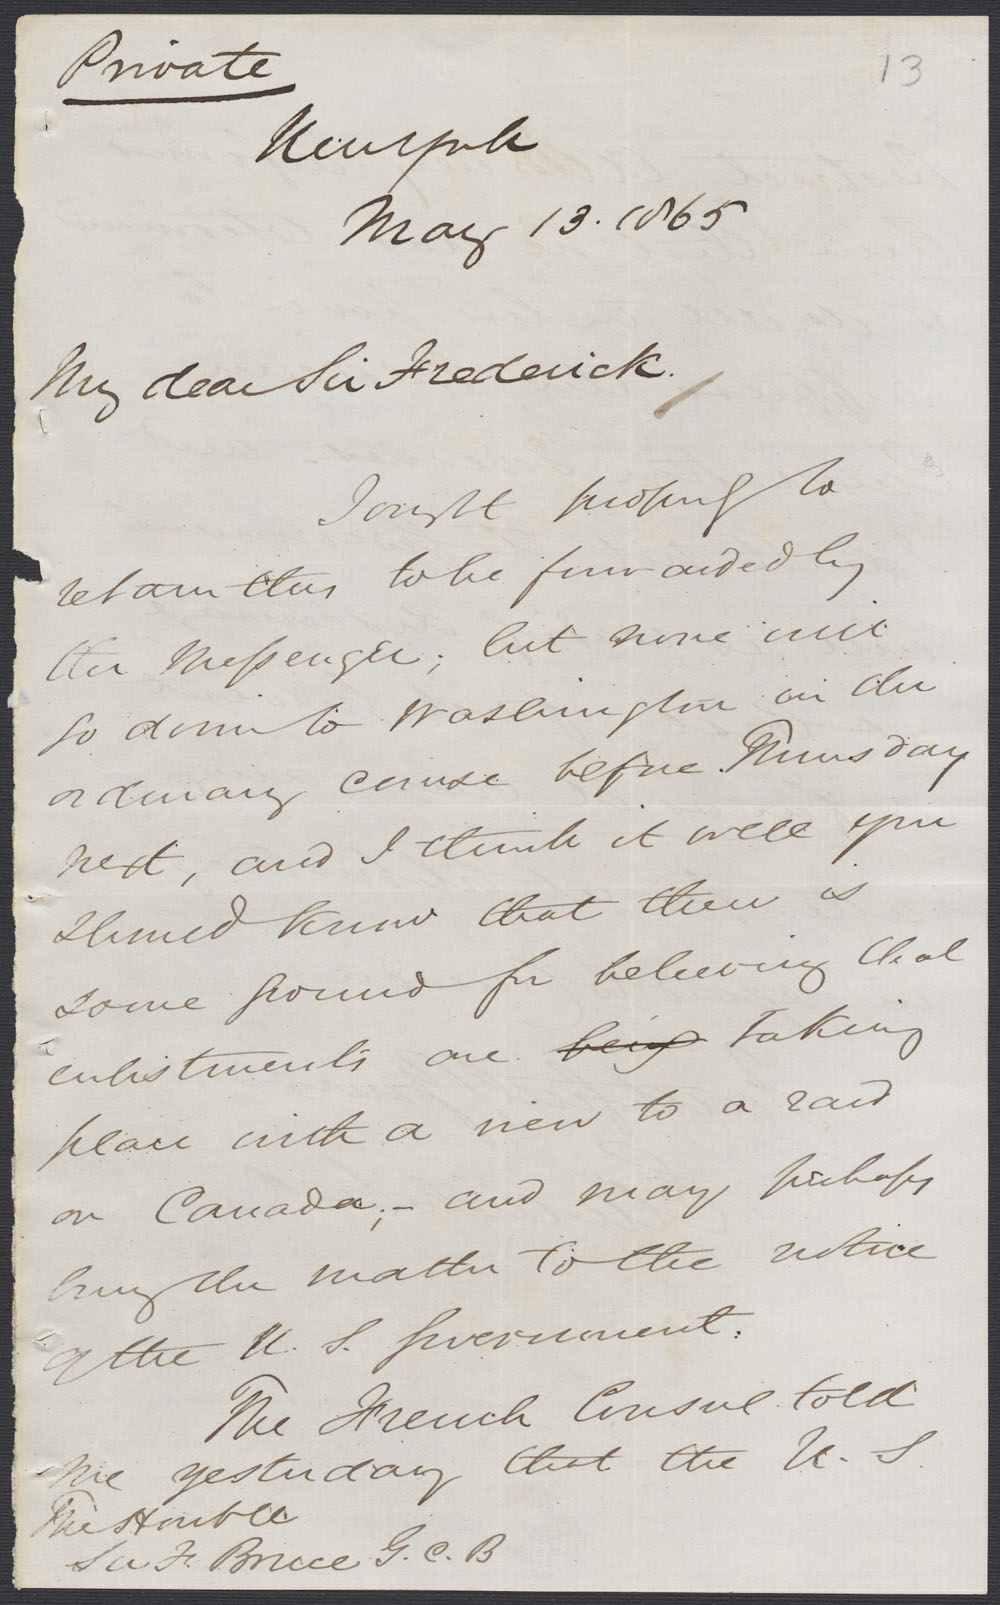 Private
13
New York
May 13. 1865
My dear Sir Frederick.
I ought properly to
retain this to be forwarded by
the Messenger; but none will
go down to Washington in the
ordinary course before Thursday
next, and I think it well you
should know that there is
some ground for believing that
enlistments are being taking
place with a view to a raid
on Canada;- and may perhaps
bring the matter to the notice
of the U. S. Government.
The French Consul told
me yesterday that the U. S.
The Honble
Sir F. Bruce G. C. B